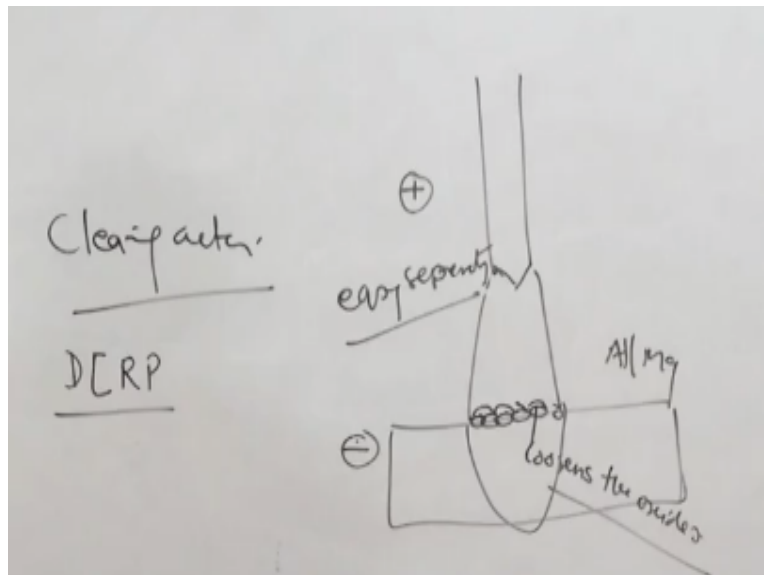 ⊕
Cleaning action.
easy separation
DCRP
Al/Mg
⊖
loosens the oxides